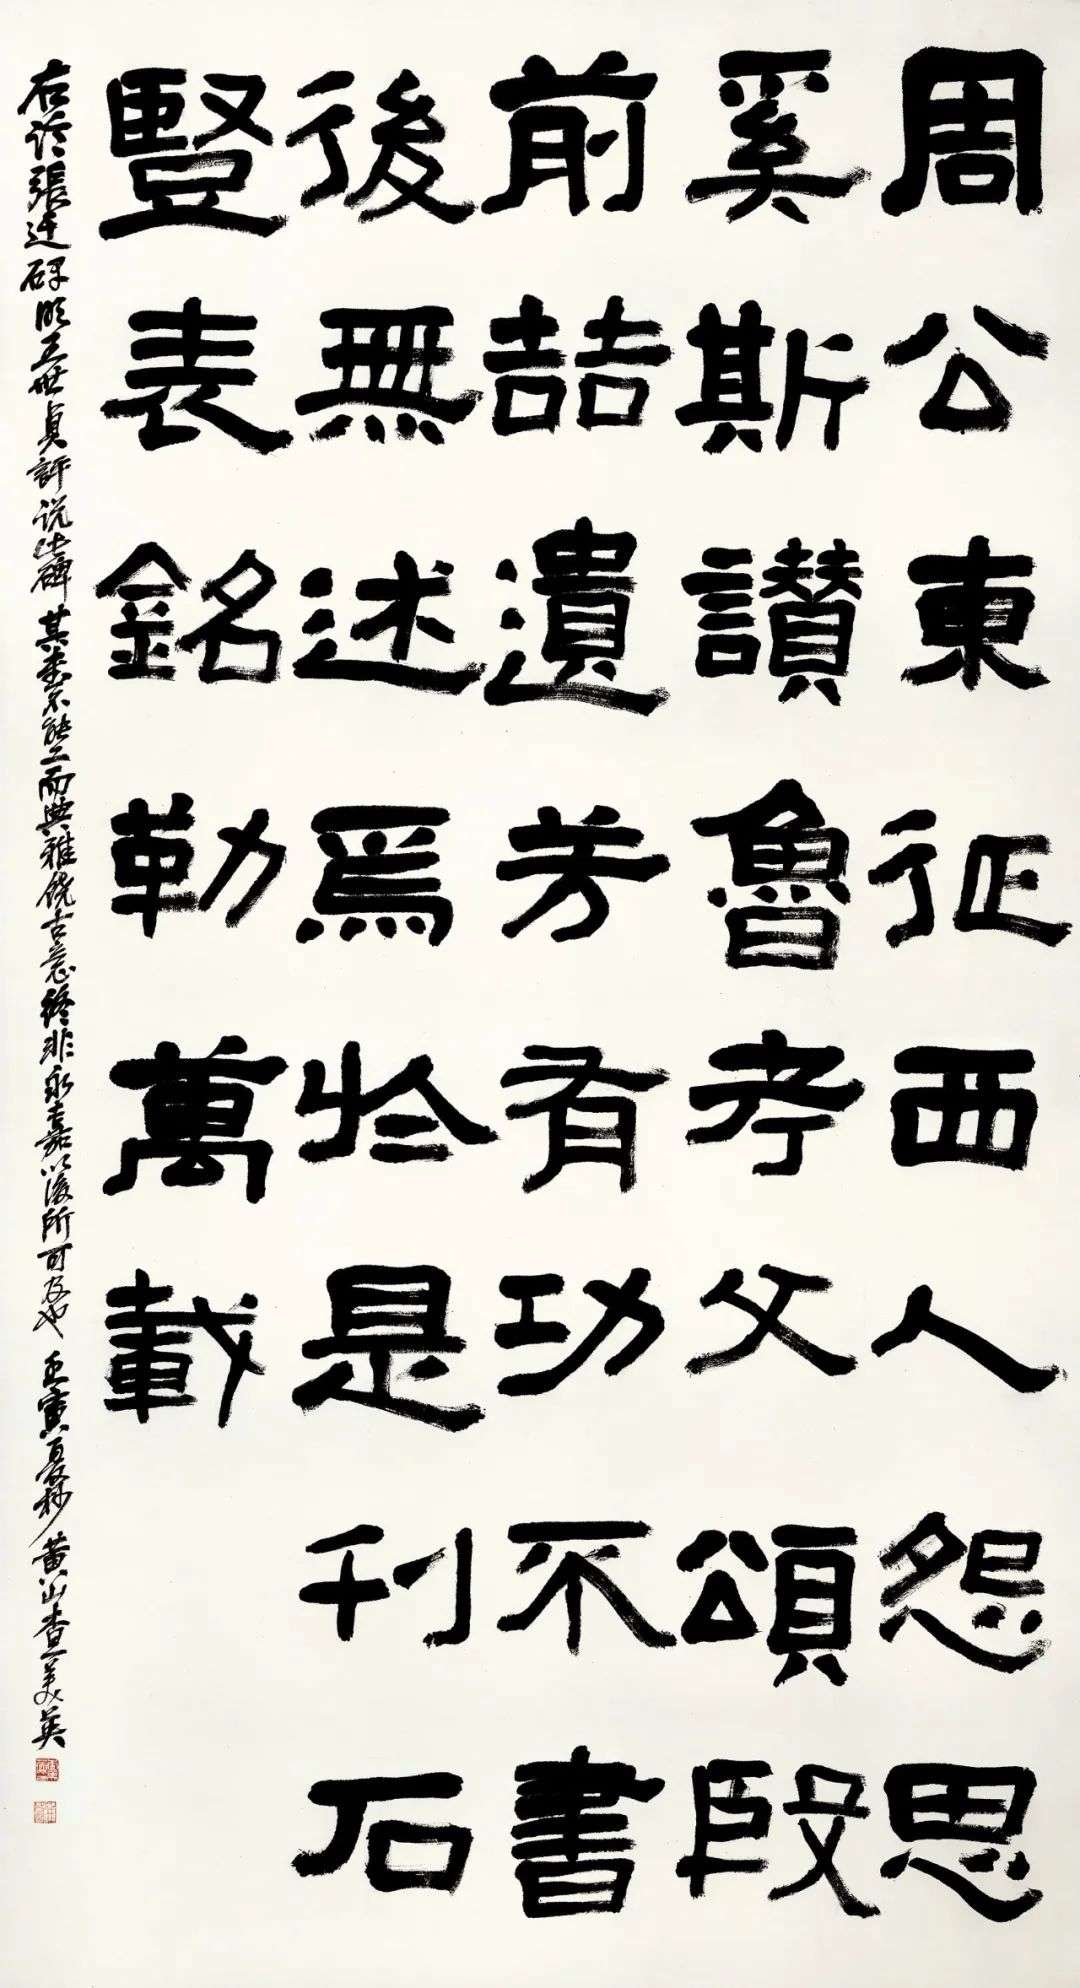 周公東征西人怨思
奚斯讚魯考父頌殷
前喆遺芳有功不書
後無述焉於是刊石
豎表銘勒萬載
右临張迁碑明王世貞評说此碑其書不能工而典雅饒古意終非永嘉以後所可及也 壬寅夏杪 黄山查美英